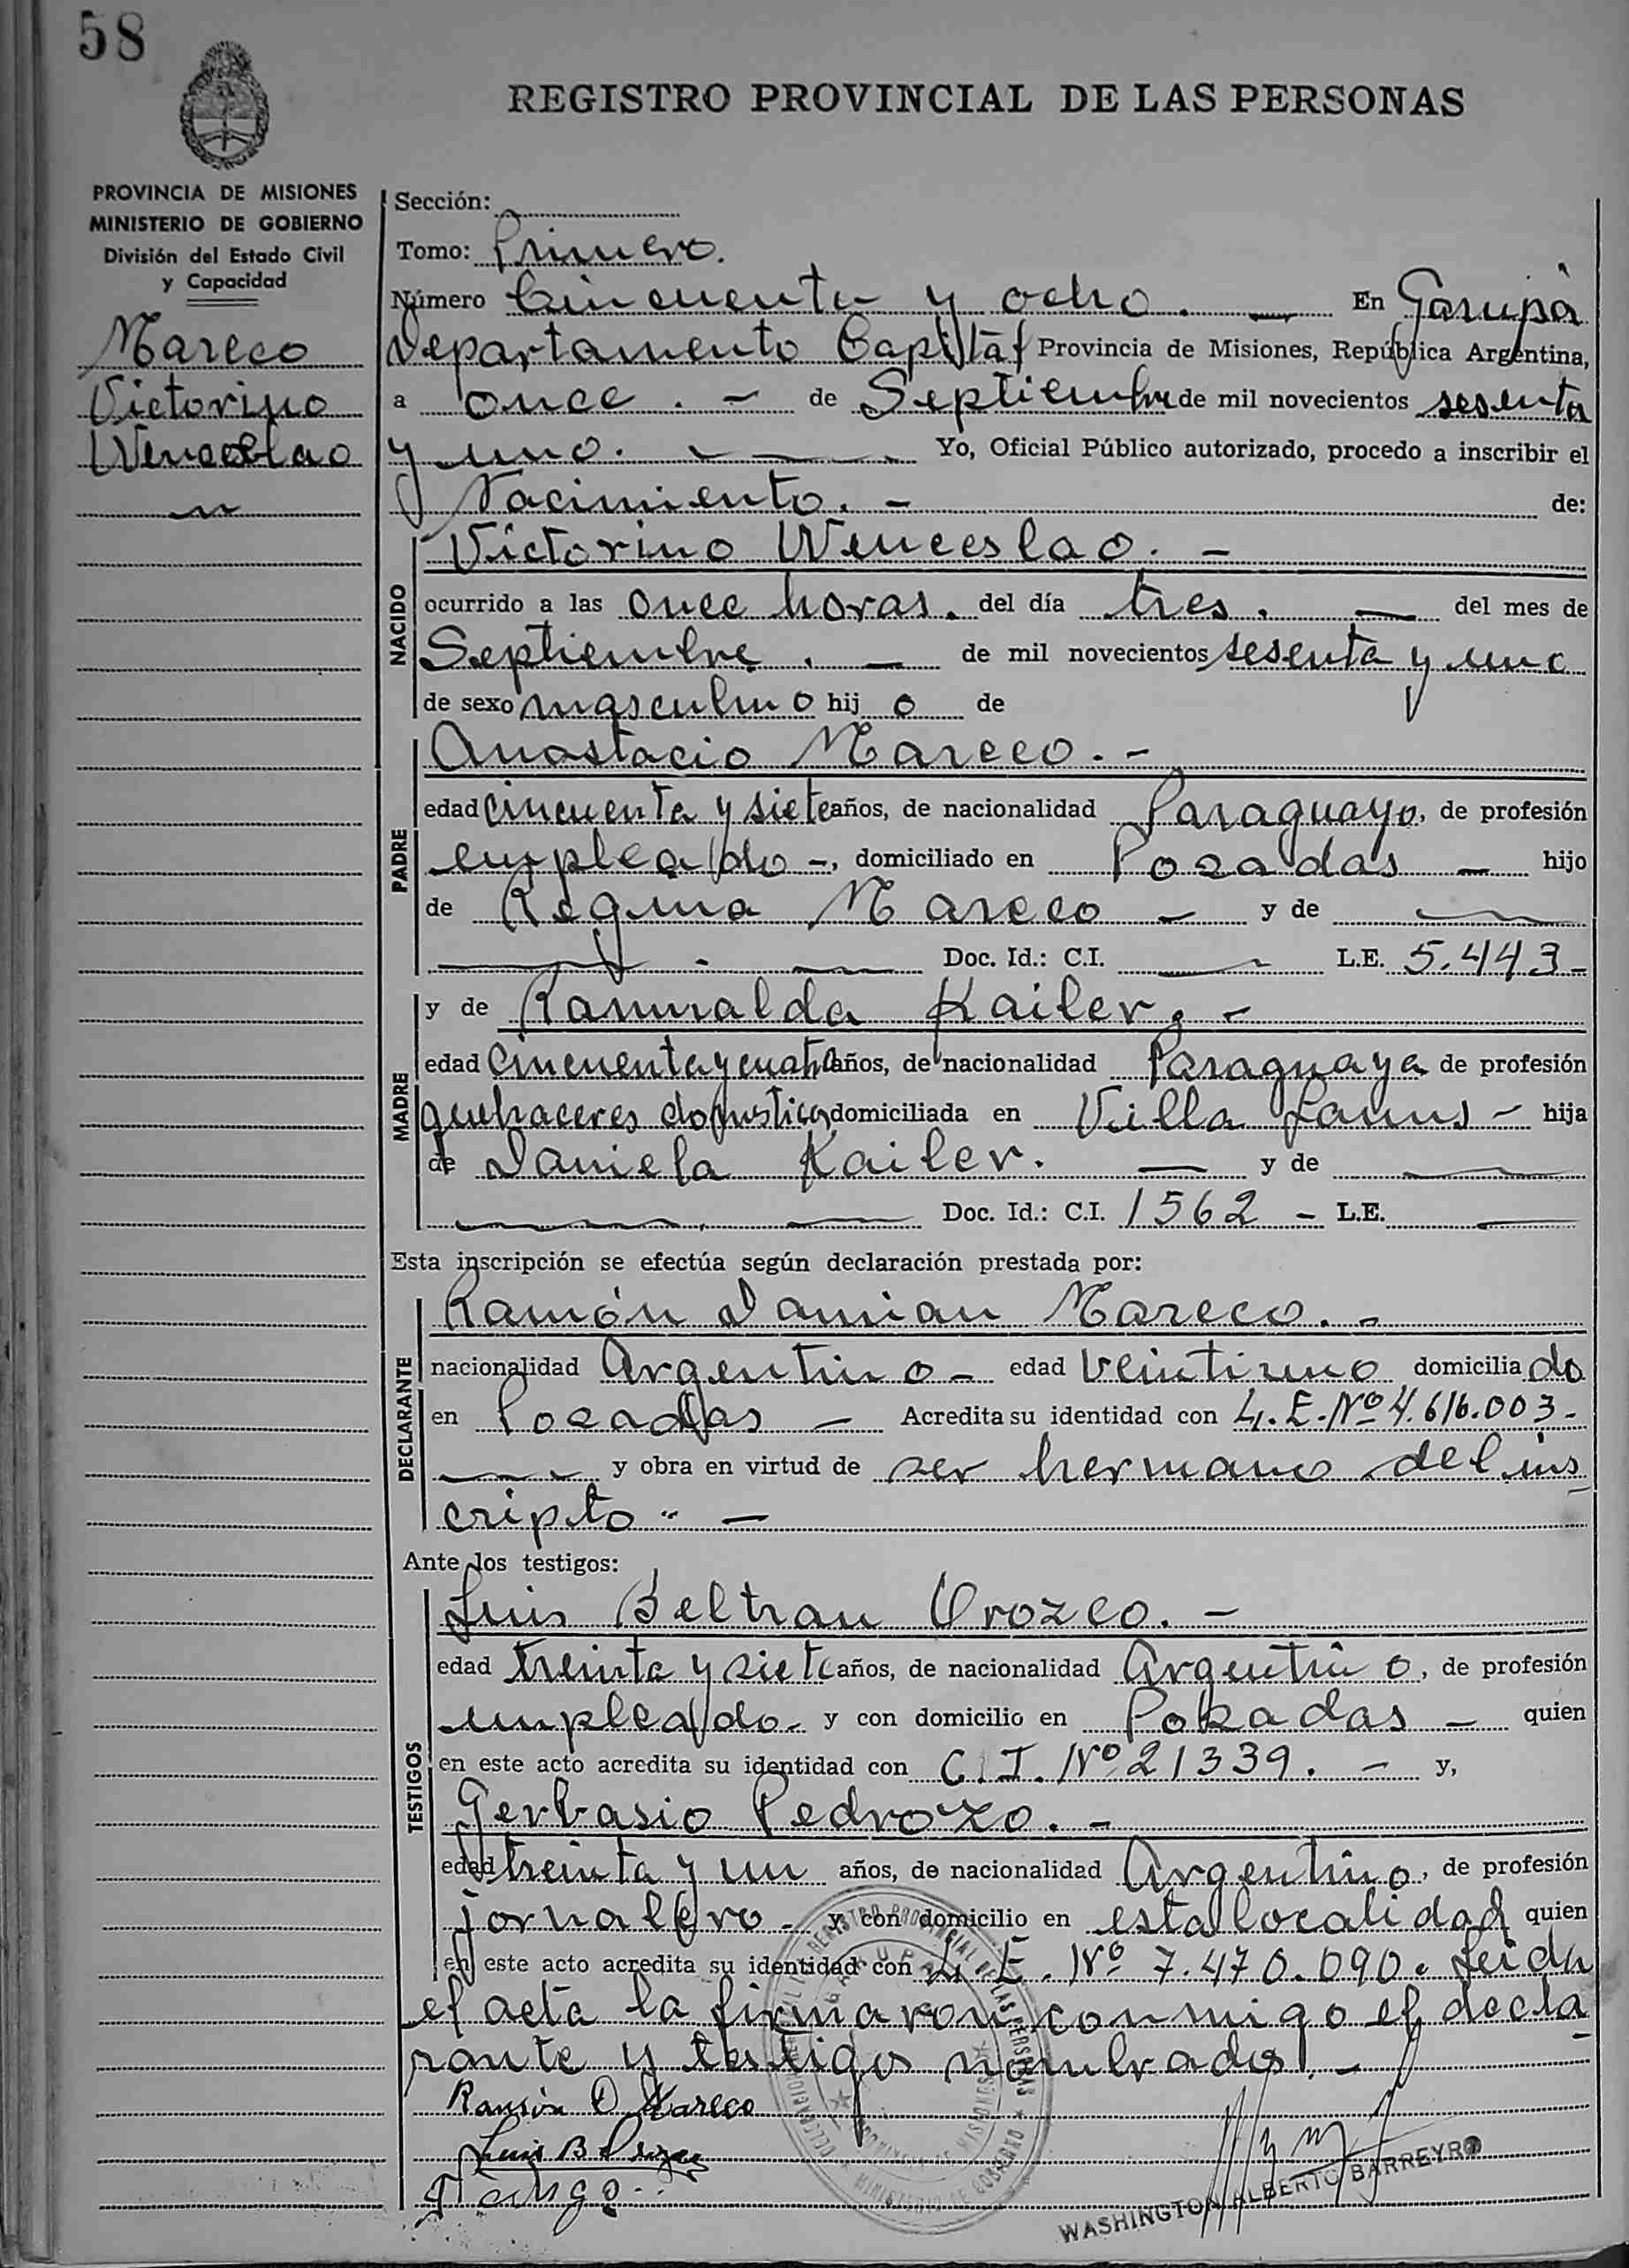 58
REGISTRO PROVINCIAL DE LAS PERSONAS
PROVINCIA DE MISIONES
MINISTERIO DE GOBIERNO
División del Estado Civil
y Capacidad
Mareco
Victorino
Wenceslao
Sección:
Tomo: Primero.
Número Cincuenta y ocho. — En Garupá
Departamento Capital Provincia de Misiones, República Argentina,
a once. - de Septiembre de mil novecientos sesenta
y uno. — Yo, Oficial Público autorizado, procedo a inscribir el
Nacimiento. - de:
NACIDO
Victorino Wenceslao. -
ocurrido a las once horas. del día tres. — del mes de
Septiembre. — de mil novecientos sesenta y uno
de sexo masculino hij o de
PADRE
Anastacio Mareco. -
edad cincuenta y siete años, de nacionalidad Paraguayo, de profesión
empleado -, domiciliado en Posadas — hijo
de Regina Mareco — y de —
Doc. Id.: C.I. — L.E. 5.443 -
MADRE
y de Ramualda Kailer. -
edad cincuenta y cuatro años, de nacionalidad Paraguaya de profesión
quehaceres domesticos domiciliada en Villa Lanus - hija
de Daniela Kailer. — y de —
Doc. Id.: C.I. 1562 - L.E. —
Esta inscripción se efectúa según declaración prestada por:
DECLARANTE
Ramón Damian Mareco. -
nacionalidad Argentino - edad veintiuno domicilia do
en Posadas — Acredita su identidad con L.E. Nº 4.616.003 -
y obra en virtud de ser hermano del ins
cripto. -
Ante los testigos:
TESTIGOS
Luis Beltran Orozco. -
edad treinta y siete años, de nacionalidad Argentino, de profesión
empleado - y con domicilio en Posadas — quien
en este acto acredita su identidad con C.I. Nº 21339. - y,
Gerbasio Pedrozo. -
edad treinta y un años, de nacionalidad Argentino, de profesión
jornalero - y con domicilio en esta localidad quien
en este acto acredita su identidad con L.E. Nº 7.470.090. Leida
el acta la firmaron conmigo el decla
rante y testigos nombrados. -
Ramón D Mareco
Luis B Orozco
WASHINGTON ALBERTO BARREYRO